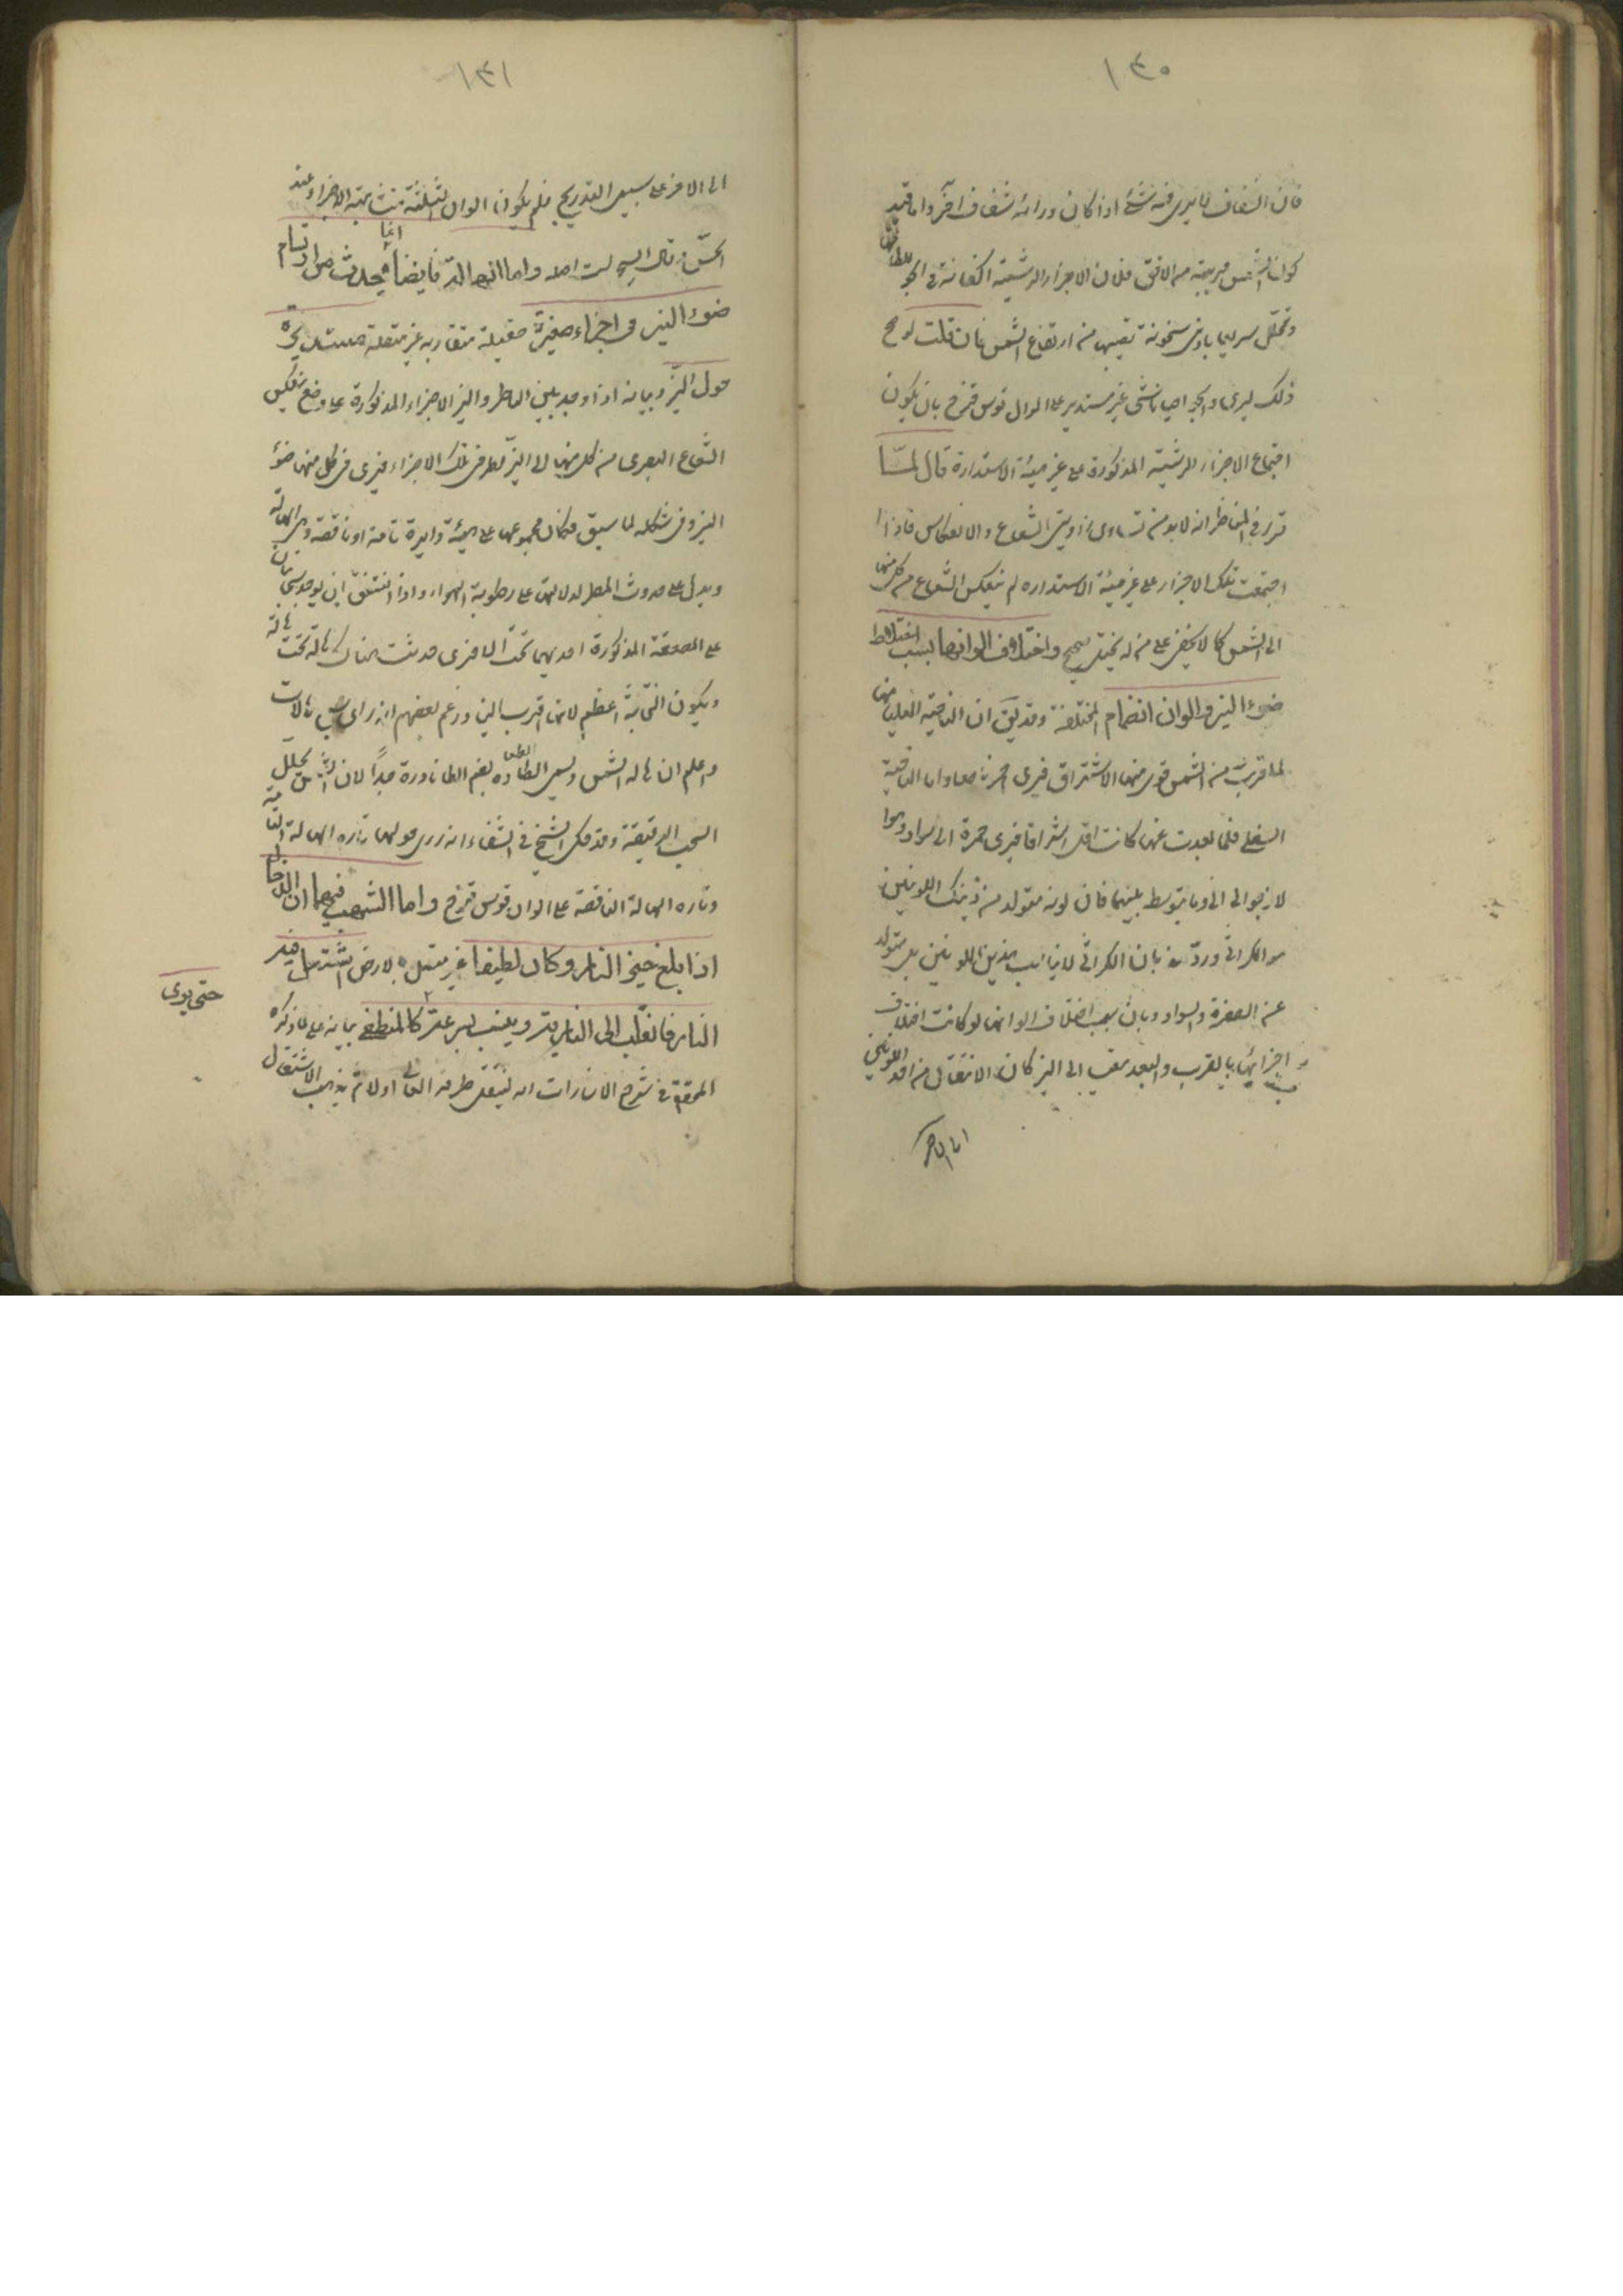 ١٣٠
فان الشفاف لا يرى فيه شئ اذا كان ورائه شفاف اخر واما قيد
كون الشمس قريبة من الافق فلان الاجزاء الرشية الكائنة في الجو
وتحلل سريعا بادنى سخونة تصيبها من ارتفاع الشمس فان قلت لو صح
ذلك ليرى في الجو احيانا شئ غير مستدير على الوان قوس قزح بان يكون
اجتماع الاجزاء الرشية المذكورة على غير هيئة الاستدارة قال لما
تقرر في المناظر انه لا بد من تساوى زاويتى الشعاع والانعكاس فاذا
اجتمعت تلك الاجزاء على غير هيئة الاستداره لم ينعكس الشعاع من كل منها
الى الشمس كما لا يخفى على من له تخيل صحيح واختلاف الوانها بسبب اختلاط
ضوء النير والوان الغمام المختلفة وقد يق ان الناحية العليا منها
لما قربت من الشمس قوى فيها الاشراق فيرى احمر ناصعا واما الناحية
السفلى فلما بعدت عنها كانت اقل اشراقا فيرى حمرة الى سواد وهو
الارجوانى وما يتوسط بينهما فان لونه متولد من ذينك اللونين
هو الكراثى ورد بان الكراثى لا يناسب هذين اللونين بل يتولد
عن الصفرة والسواد وبان سبب اختلاف الوانها لو كانت اختلاف
اجزائها بالقرب والبعد الى النير كان الانتقال من احد اللونين
الى الاخر
١٣١
الى الاخر على سبيل التدريج فلم يكون الوان الثلثة متشابهة الاجزاء عند
الحس وقال الشيخ لست احصله واما الهالة فايضا انما يحدث من ارتسام
ضوء النير فى اجزاء صغيرة صقيلة متقاربه غير متصلة مستديرة
حول النير وبيانه اذا وجد بين الناظر والنير الاجزاء المذكورة على وضع ينعكس
الشعاع البصرى من كل منها الى النير لطرفى تلك الاجزاء فيرى فى كل منها ضوء
النير وفى شكله لما سبق فكان مجموعها على هيئة دايرة تامة او ناقصة وهى الهالة
ويدل على حدوث المطر لدلالتها على رطوبة الهواء واذا اتفق ان يوجد سحابتان
على الصفة المذكورة احديهما تحت الاخرى حدثت هناك هالة تحت هالة
ويكون التحتانية اعظم لانها اقرب الينا وزعم بعضهم انه راى سبع هالات
واعلم ان هالة الشمس وتسمى الطفاوه بضم الطا نادرة جدا لان الشمس تحلل
السحب الرقيقة وقد حكى الشيخ فى الشفاء انه راى حولها تاره الهالة التامة
وتاره الهالة الناقصة على الوان قوس قزح واما الشهب فهما ان الدخان
اذا بلغ حيز النار وكان لطيفا غير متصل بالارض اشتعل فيه
النار فانقلب الى النارية ويلتهب بسرعة كالمنطفى بيانه على ما ذكره
حتى يرى
المحقق فى شرح الاشارات انه يشتعل طرفه العالى اولا ثم يذهب الاشتعال